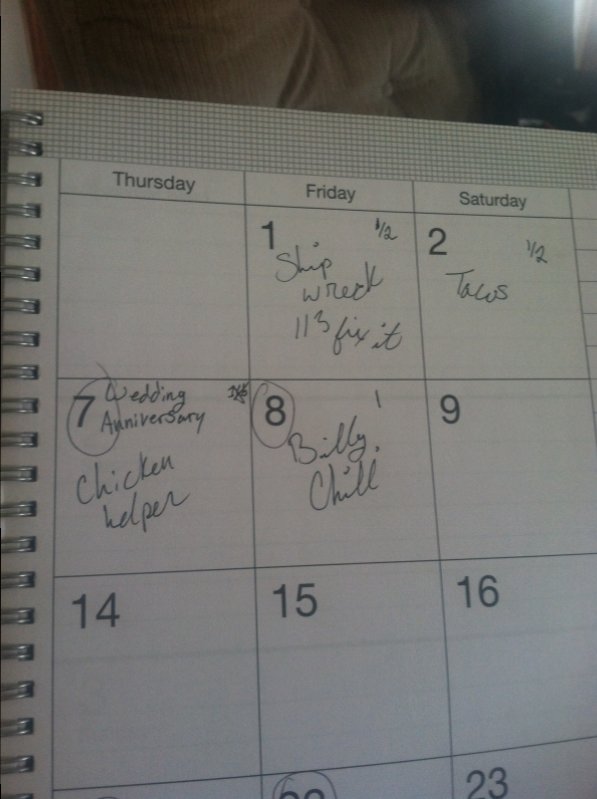 Thursday Friday Saturday
1 1/2
Ship
wreck
113 fix it
2 1/2
Tacos
7 Wedding
Anniversary
Chicken
helper
8 1
Billy.
Chill
9
14
15
16
23